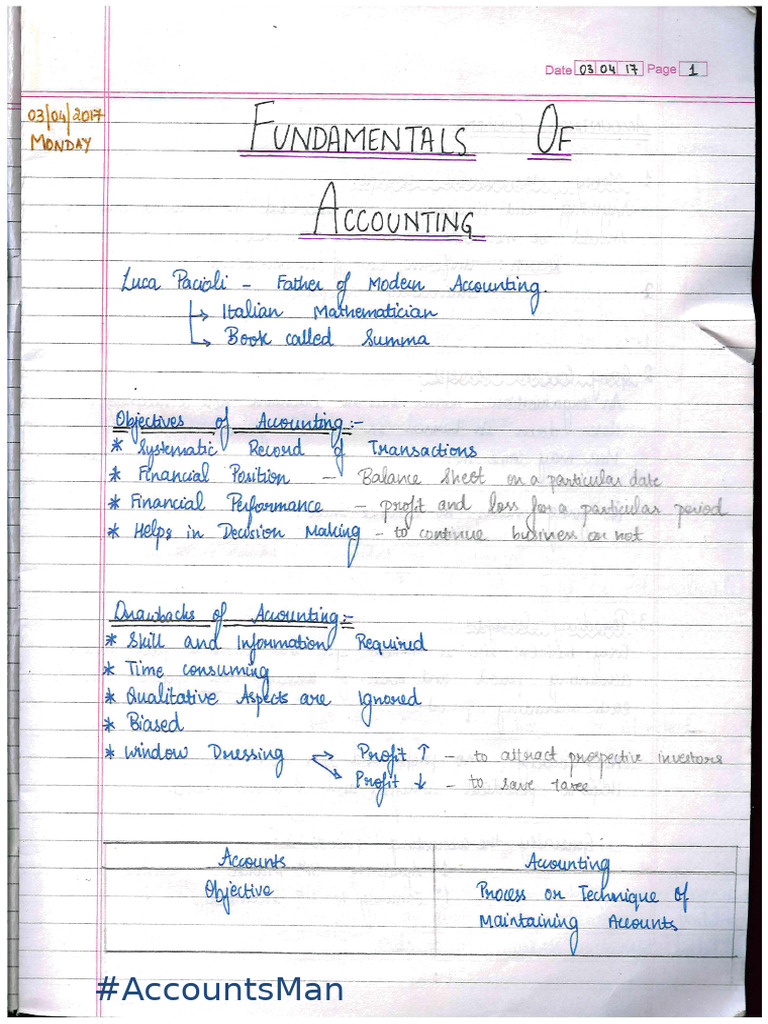 Date 03 04 17 Page 1
03/04/2017
MONDAY
FUNDAMENTALS OF
ACCOUNTING
Luca Pacioli - Father of Modern Accounting.
↳ Italian Mathematician
↳ Book called Summa
Objectives of Accounting:-
* Systematic Record of Transactions
* Financial Position - Balance Sheet on a particular date
* Financial Performance - profit and loss for a particular period
* Helps in Decision Making - to continue business or not
Drawbacks of Accounting:-
* Skill and Information Required
* Time consuming
* Qualitative Aspects are Ignored
* Biased
* Window Dressing → Profit ↑ - to attract prospective investors
↘ Profit ↓ - to save taxes
Accounts Accounting
Objective Process or Technique of
Maintaining Accounts
#AccountsMan